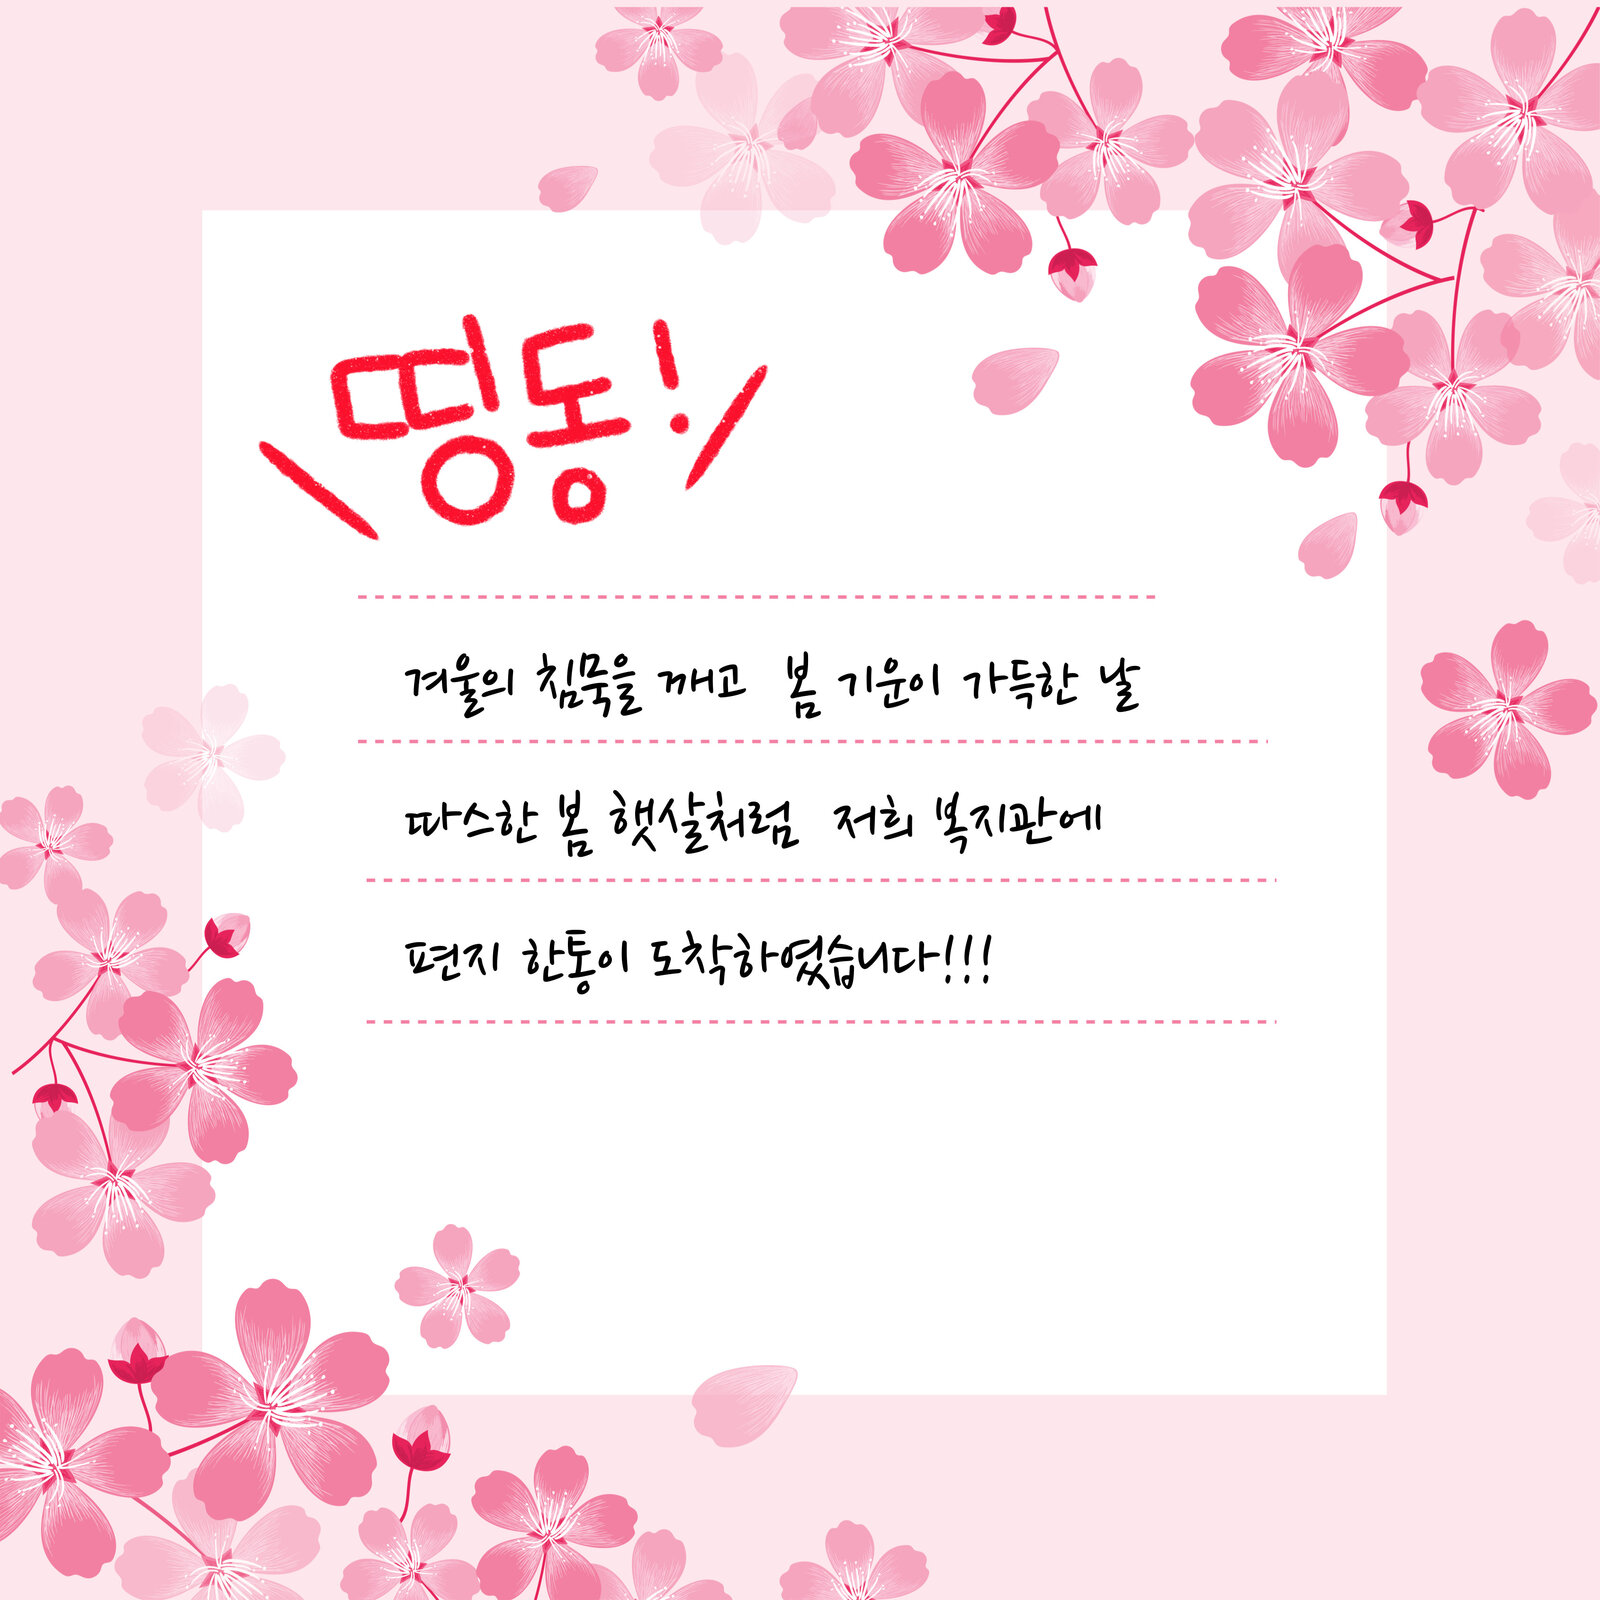 \띵동!/
겨울의 침묵을 깨고 봄 기운이 가득한 날
따스한 봄 햇살처럼 저희 복지관에
편지 한통이 도착하였습니다!!!